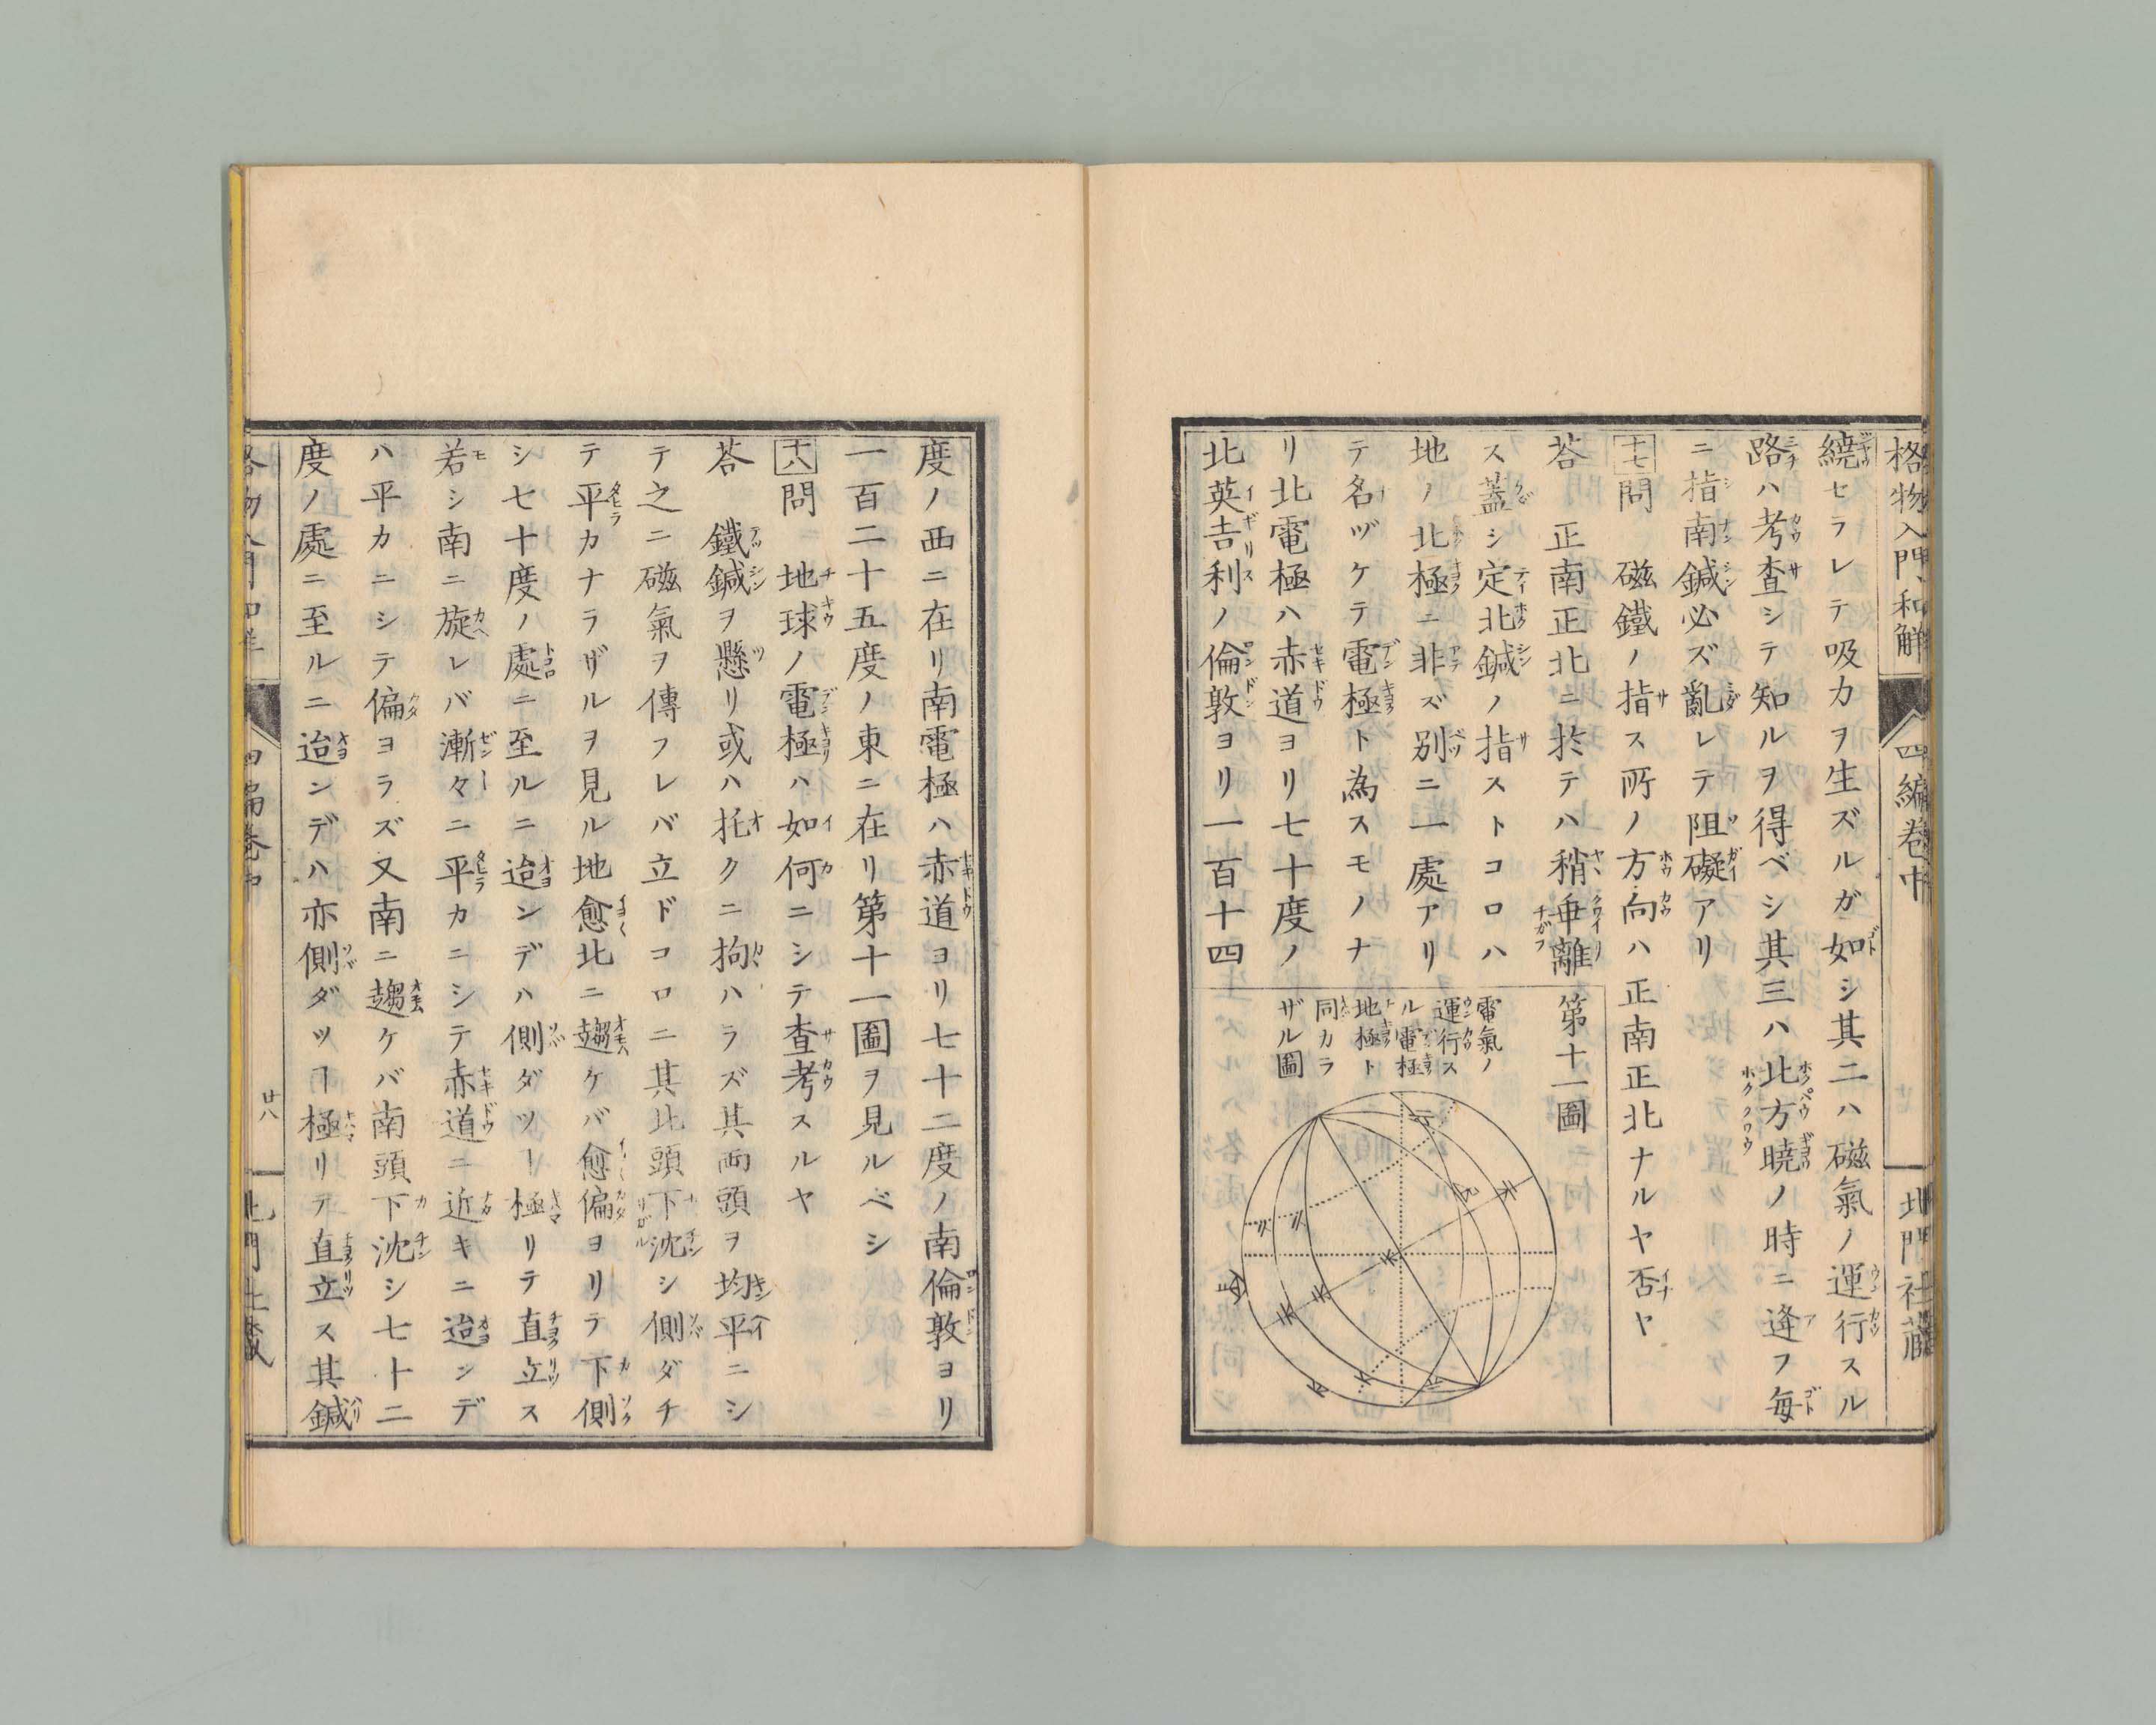 格物入門和解 四編卷中 北門社藏
繞セラレテ吸力ヲ生ズルガ如シ其二ハ磁氣ノ運行スル
路ハ考査シテ知ルヲ得ベシ其三ハ北方曉ノ時ニ逢フ每
ニ指南鍼必ズ亂レテ阻礙アリ
十七問 磁鐵ノ指ス所ノ方向ハ正南正北ナルヤ否ヤ
答 正南正北ニ於テハ稍乖離
ス蓋シ定北鍼ノ指ストコロハ
地ノ北極ニ非ズ別ニ一處アリ
テ名ヅケテ電極ト為スモノナ
リ北電極ハ赤道ヨリ七十度ノ
北英吉利ノ倫敦ヨリ一百十四
第十一圖
電氣ノ
運行ス
ル電極
地極ト
同カラ
ザル圖
度ノ西ニ在リ南電極ハ赤道ヨリ七十二度ノ南倫敦ヨリ
一百二十五度ノ東ニ在リ第十一圖ヲ見ルベシ
十八問 地球ノ電極ハ如何ニシテ査考スルヤ
答 鐵鍼ヲ懸リ或ハ托クニ拘ハラズ其両頭ヲ均平ニシ
テ之ニ磁氣ヲ傳フレバ立ドコロニ其北頭下沈シ側ダチ
テ平カナラザルヲ見ル地愈北ニ趨ケバ愈偏ヨリテ下側
シ七十度ノ處ニ至ルニ迨ンデハ側ダツヿ極リテ直立ス
若シ南ニ旋レバ漸々ニ平カニシテ赤道ニ近キニ迨ンデ
ハ平カニシテ偏ヨラズ又南ニ趨ケバ南頭下沈シ七十二
度ノ處ニ至ルニ迨ンデハ亦側ダツヿ極リテ直立ス其鍼
廿八